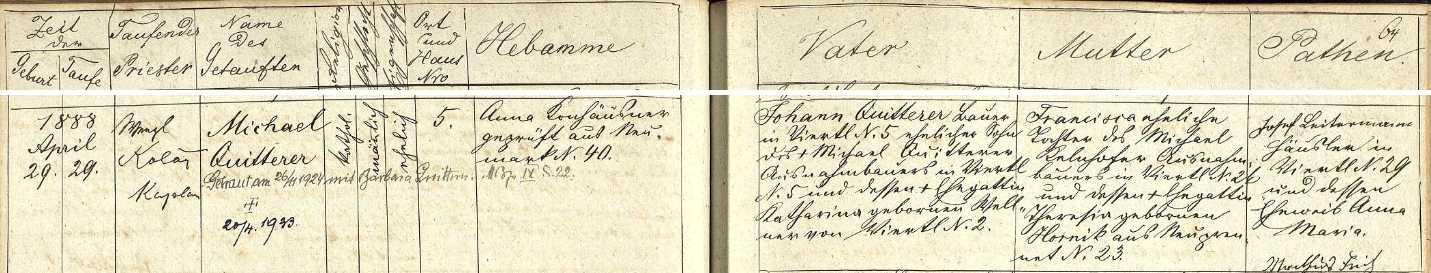 Zeit der
Geburt Taufe
Taufender Priester
Name des Getauften
Religion
Geschlecht
Ort und Haus Nro
Hebamme
Vater
Mutter
Pathen.
64
1888
April
29. 29.
Wenzl
Kolář
Kaplan
Michael
Quitterer
Getraut am 26/11 1924 mit Barbara
20/4. 1933.
kathol.
männlich
ehelich
5.
Anna
geprüft aus Neu
mark N. 40.
Johann Quitterer Bauer
in Viertl N. 5 ehelicher Sohn
des + Michael Quitterer
Ausnahmbauers in Viertl
N. 5 und dessen + Ehegattin
Katharina gebornen Woll
ner von Viertl N. 2.
Francisca eheliche
Tochter des Michael
Ausnahm
bauers in Viertl N. 2
und dessen + Ehegattin
Theresia gebornen
Hornik aus Neupren
net N. 23.
Josef Leitermann
Häusler in
Viertl N. 29
und dessen
Eheweib Anna
Maria.